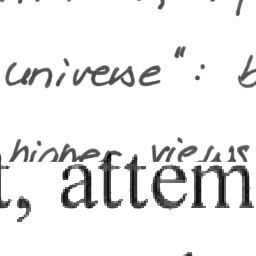 universe": b
higher views
t, attem